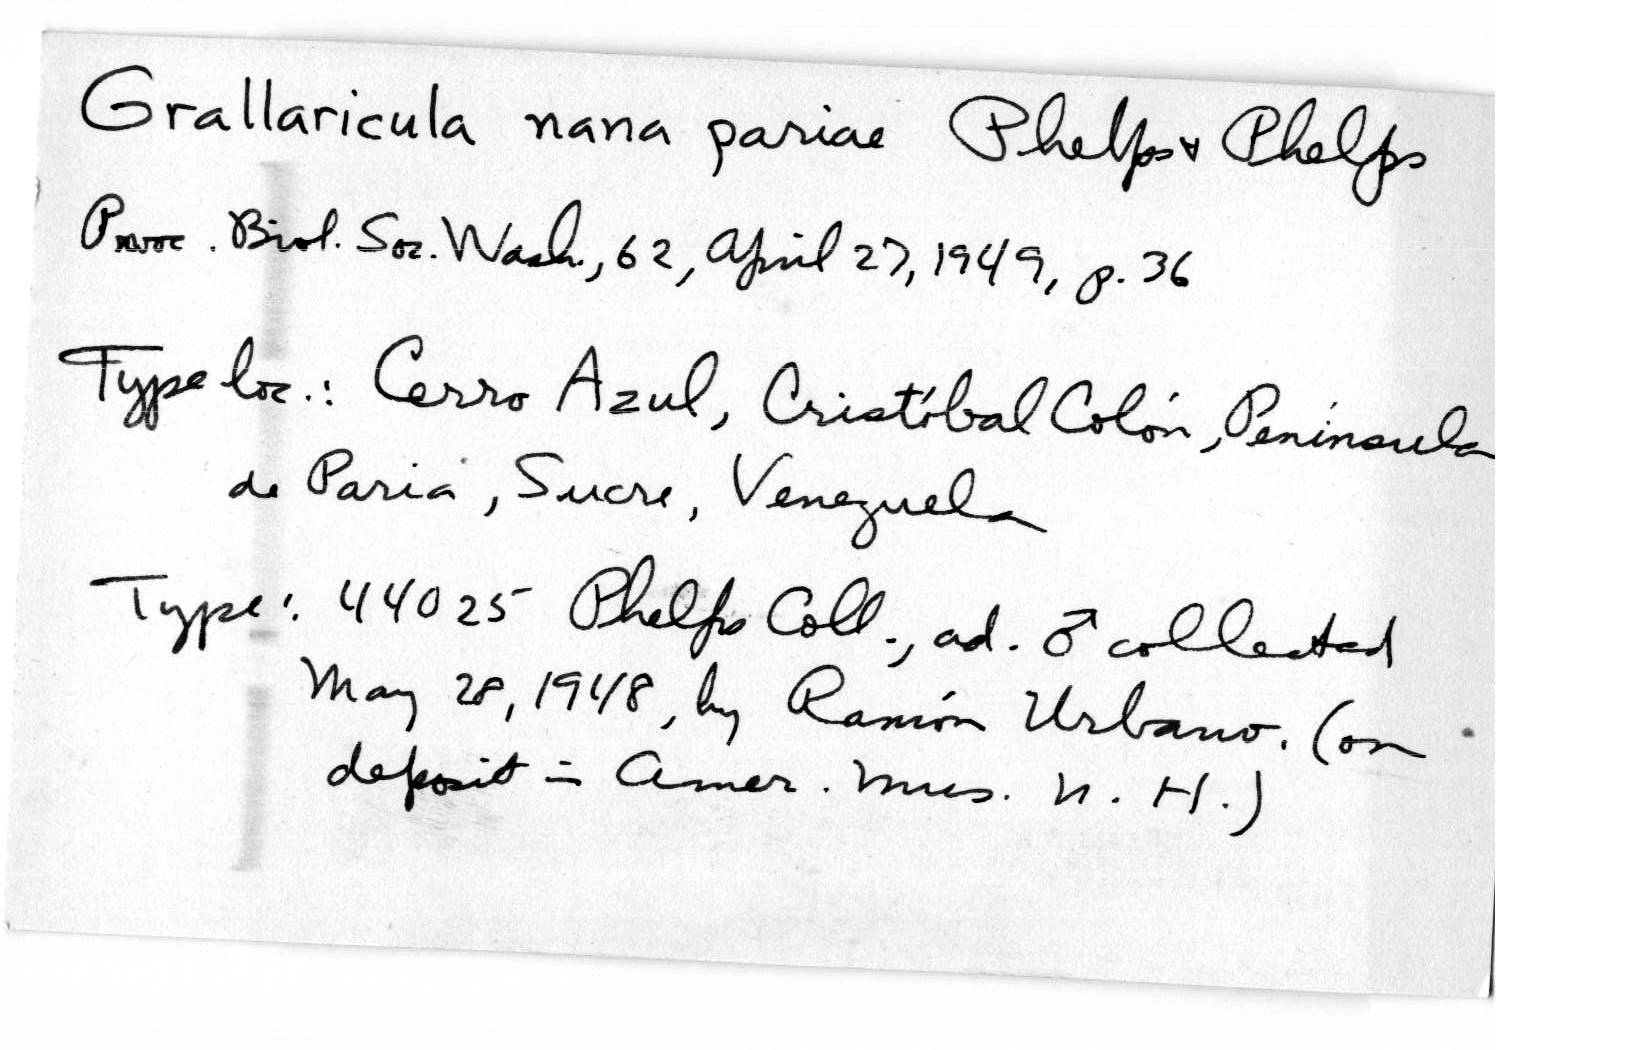 Grallaricula nana pariae Phelps & Phelps
Proc. Biol. Soc. Wash., 62, April 27, 1949, p. 36
Type loc.: Cerro Azul, Cristóbal Colón, Península
de Paria, Sucre, Venezuela
Type: 44025 Phelps Coll., ad. ♂ collected
May 28, 1948, by Ramón Urbano. (on
deposit in Amer. Mus. N. H.)